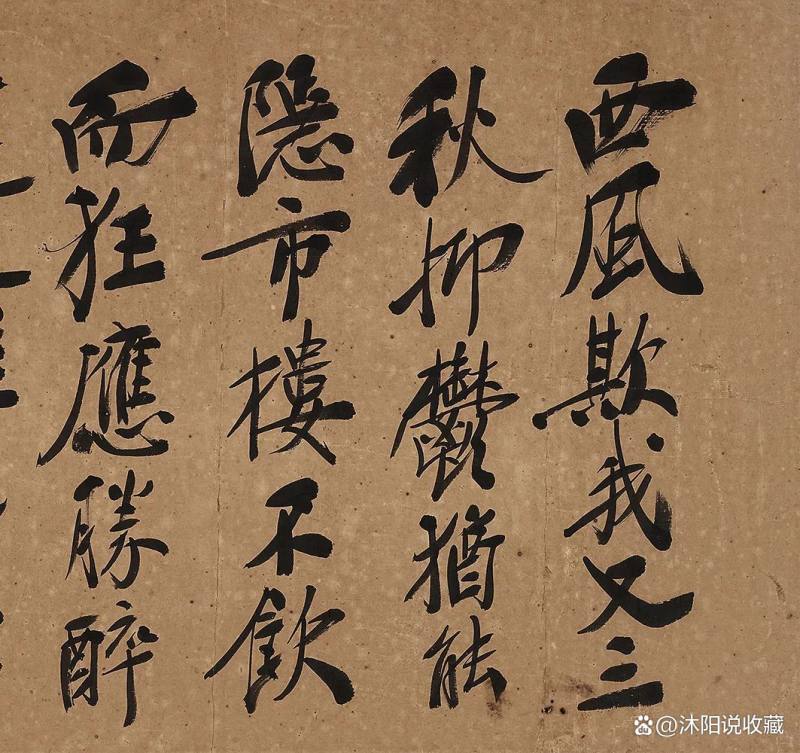 西風欺我又三
秋抑鬱猶能
隱市樓不飲
而狂應勝醉
@沐阳说收藏